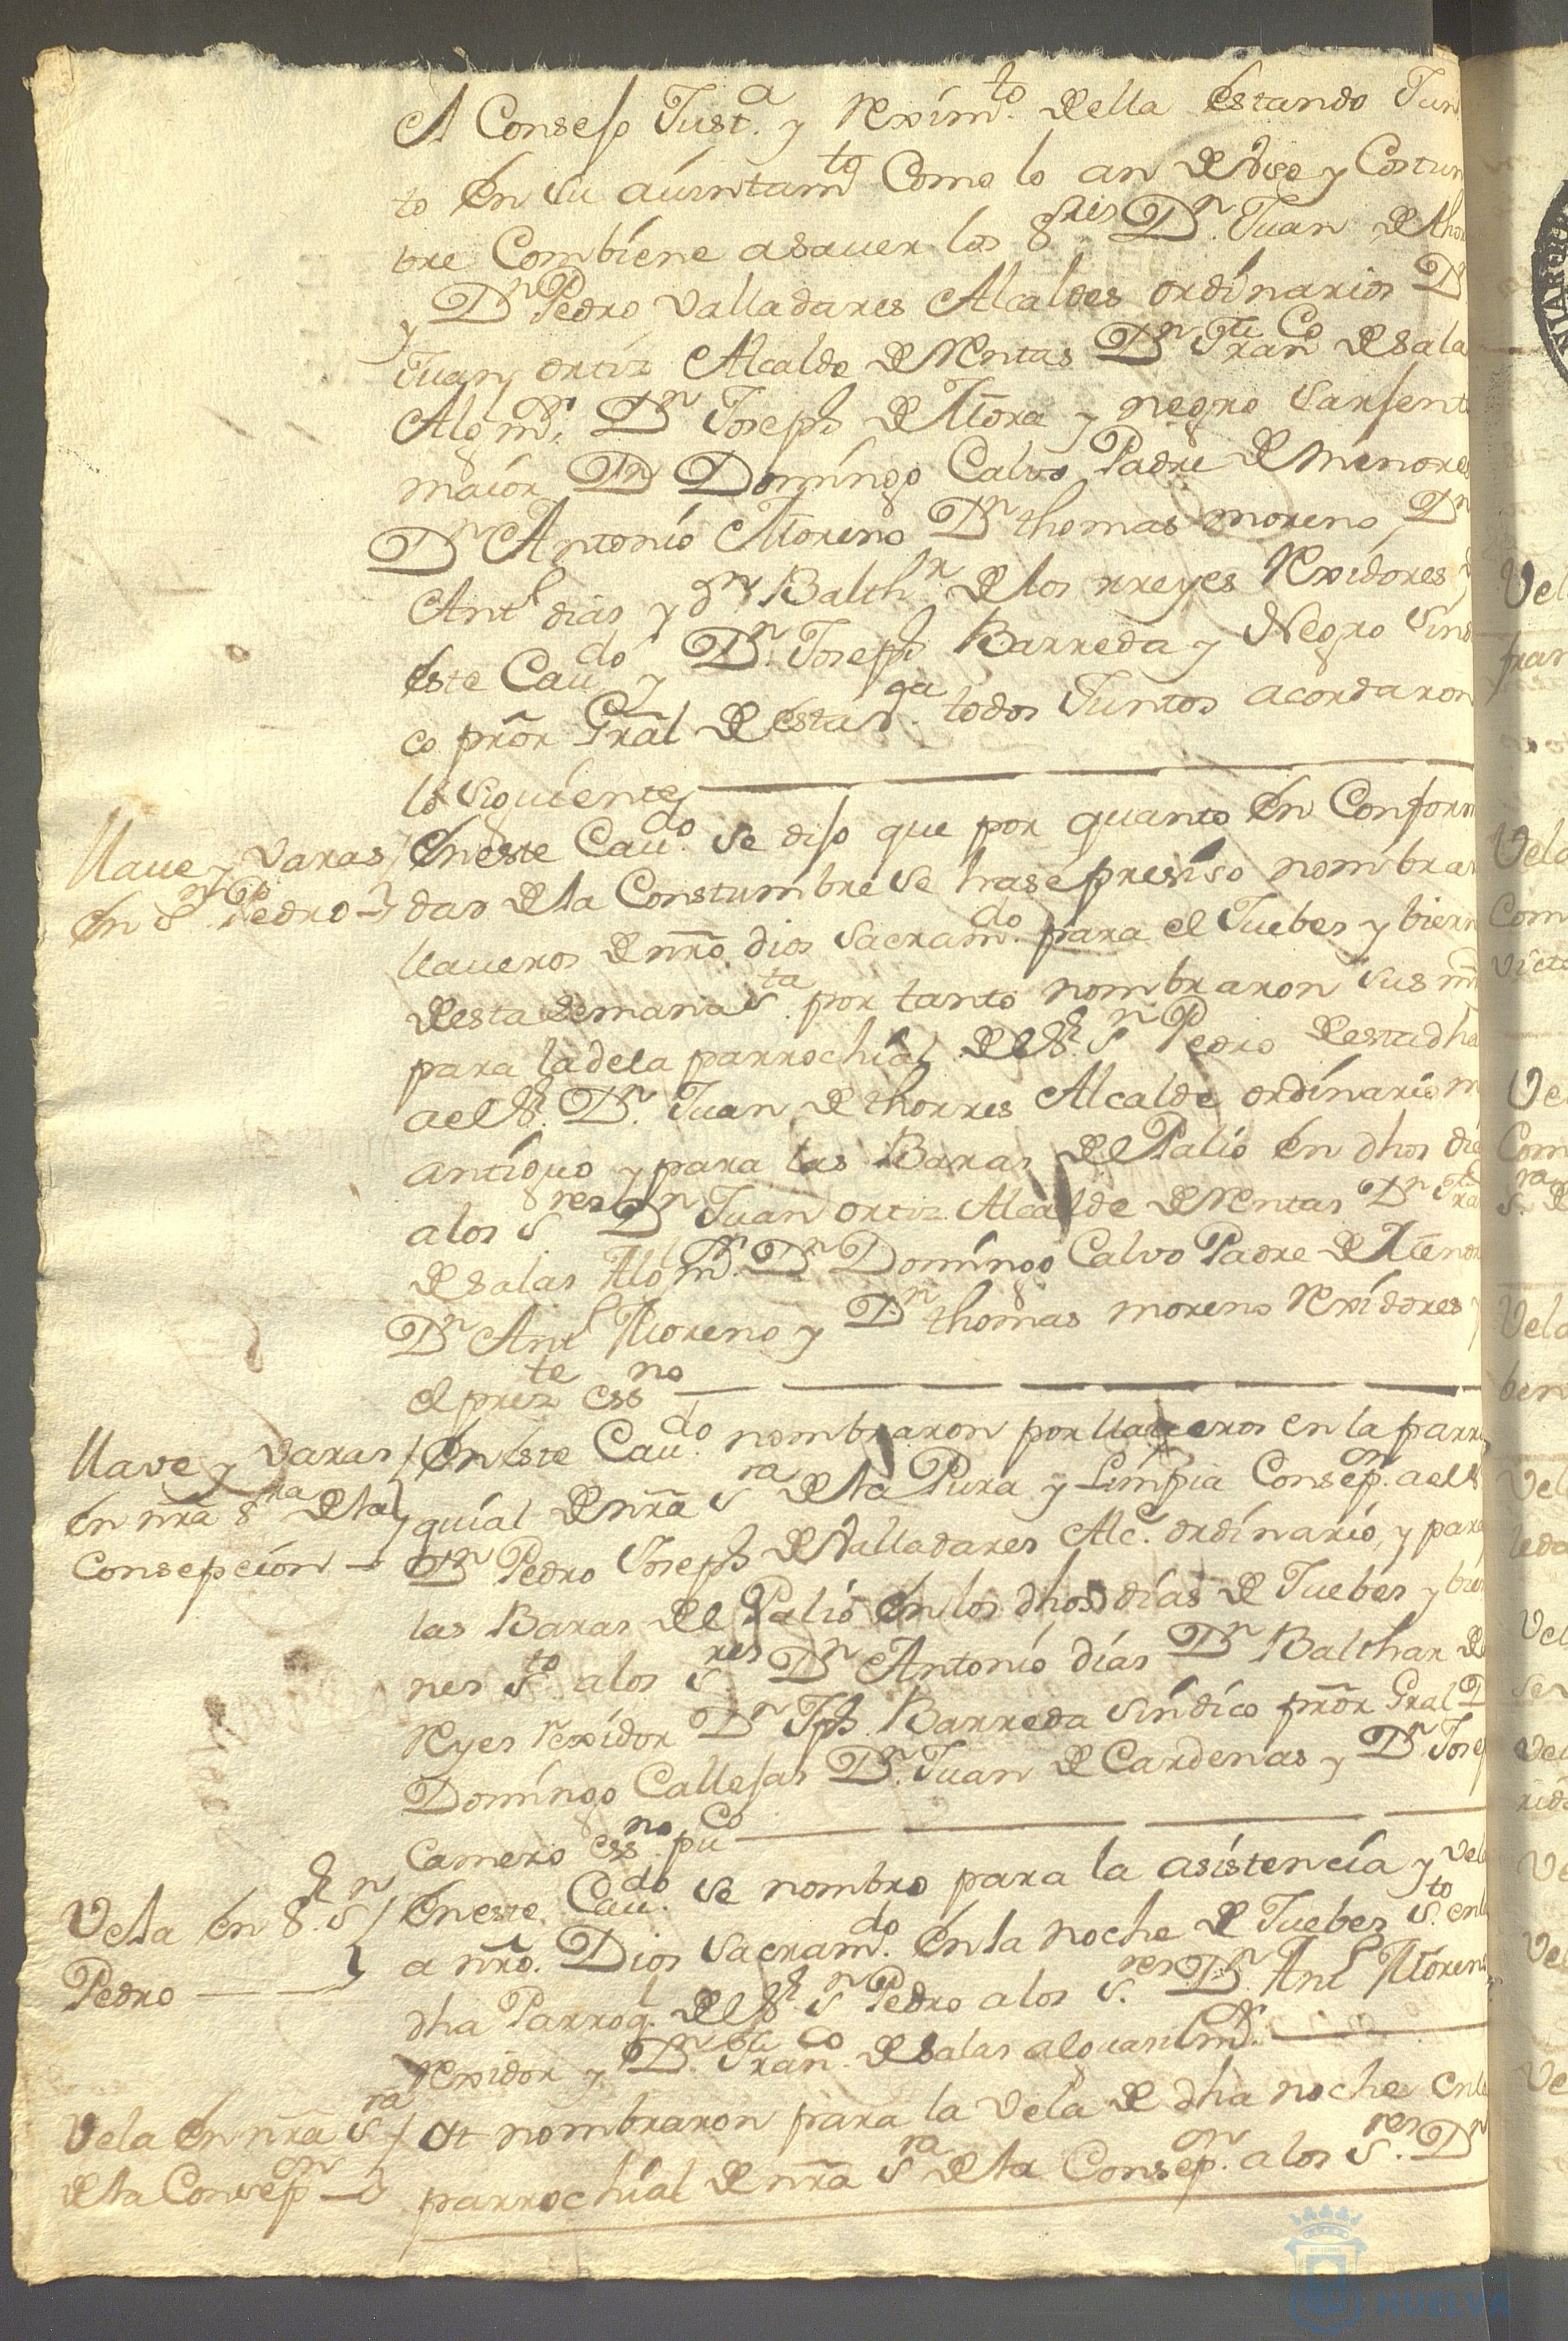 el Consejo Justª. y Reximto. de ella estando Jun
to en su auintamto Como lo an de Vso y Costum
bre Combiene asauer los Sres Dn. Juan de tho
y Dn Pedro Valladares Alcaldes ordinarios Dn
Juan ortiz Alcalde de Rentas Dn Franco de Sala
Alg mr. Dn Joseph de Mora y negro Sarjent
maior Dn Domingo Calvo Padre de Menores
Dn Antonio Moreno Dn thomas moreno, Dn
Antº dias y dn Balthr. de los rreyes Rexidores
este Caudo y Dn. Joseph Barreda y Negro Sindi
co prõr Grãl de esta va. todos Juntos acordaron
lo siguiente
Llaue y Varas
en Sn Pedro
en este Caudo. se dijo que por quanto en Conform
dad de la Constumbre se hase presiso nombrar
llaueros de nrõ. dios Sacramdo. para el Juebes y biern
de esta Semana Sta. por tanto nombraron Sus md
para la de la parrochial del Sr. Sn Pedro de esta dha
a el Sr. Dn. Juan de thorres Alcalde ordinario m
antiguo y para las Baras de el Palio en dhos dia
a los Sres Dn Juan ortiz Alcalde de Rentas Dn Fra
de Salas Alg mr. Dn Domingo Calvo Padre de Menor
Dn Antº Moreno y Dn thomas moreno Rexidores y
el preste essno
Llave y Varas
en nrã Sra de la
Consepcion
en este Caudo. nombraron por llaueros en la parro
quial de nrã Sra de la Pura y Limpia Consepon. a el Sr
Dn Pedro Joseph de Valladares Alce. ordinario, y para
las Baras de el Palio en los dhos dias de Juebes y bier
nes Sto a los Sres Dn Antonio dias Dn Balthar de
Reyes Rexidor Dn Jph Barreda Sindico prõr Gral D
Domingo Callejas Dn. Juan de Cardenas y Dn Josep
Camero essno puco
Vela en Sr. Sn
Pedro
en este Caudo. se nombro para la asistencia y vela
a nrõ. Dios Sacramdo. en la noche de Juebes Sto. en la
dha Parroql. de el Sr. Sn Pedro a los Sres Dn Antº Moreno
rexidor y Dn. Franco. de Salas alguasil mr.
Vela en nrã Sra
de la Consepon
Ot nombraron para la Vela de dha noche en la
parrochial de nrã Sra de la Consepon. a los Sres. Dn
HUELVA